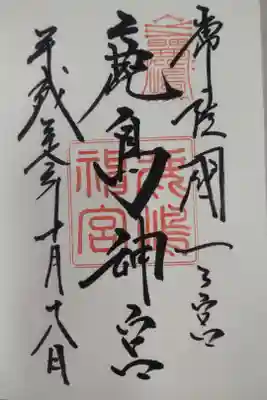 常陸國一之宮
鹿島神宮
鹿嶋
神宮
平成
年十月十八日